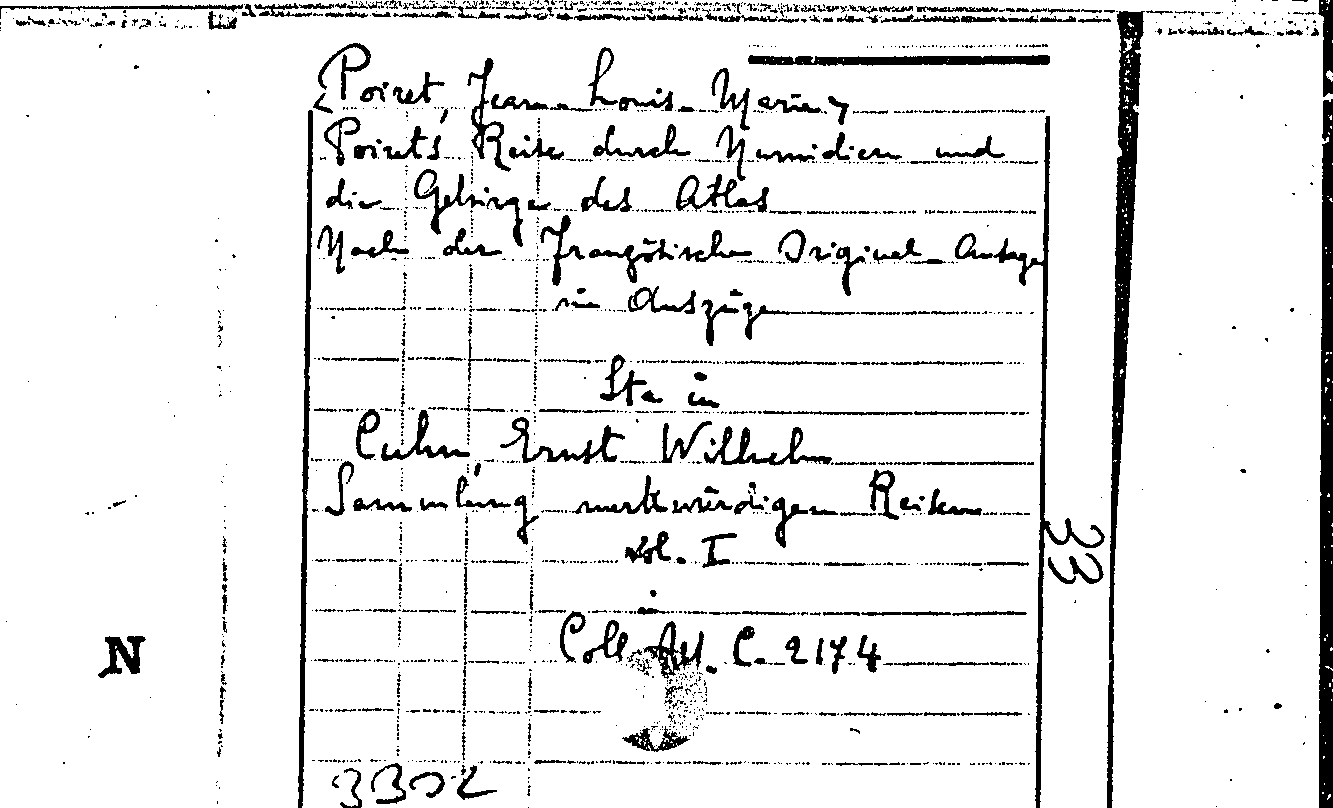 Poiret, Jean-Louis-Marie
Poiret's Reise durch Numidien und
die Gebirge des Atlas
Nach der Französische Original-Ausgabe
im Auszüge
Sta in
Cuhn, Ernst Wilhelm
Sammlung merkwürdigen Reisen
vol. I
in
Coll. C. 2174
33
N
3302